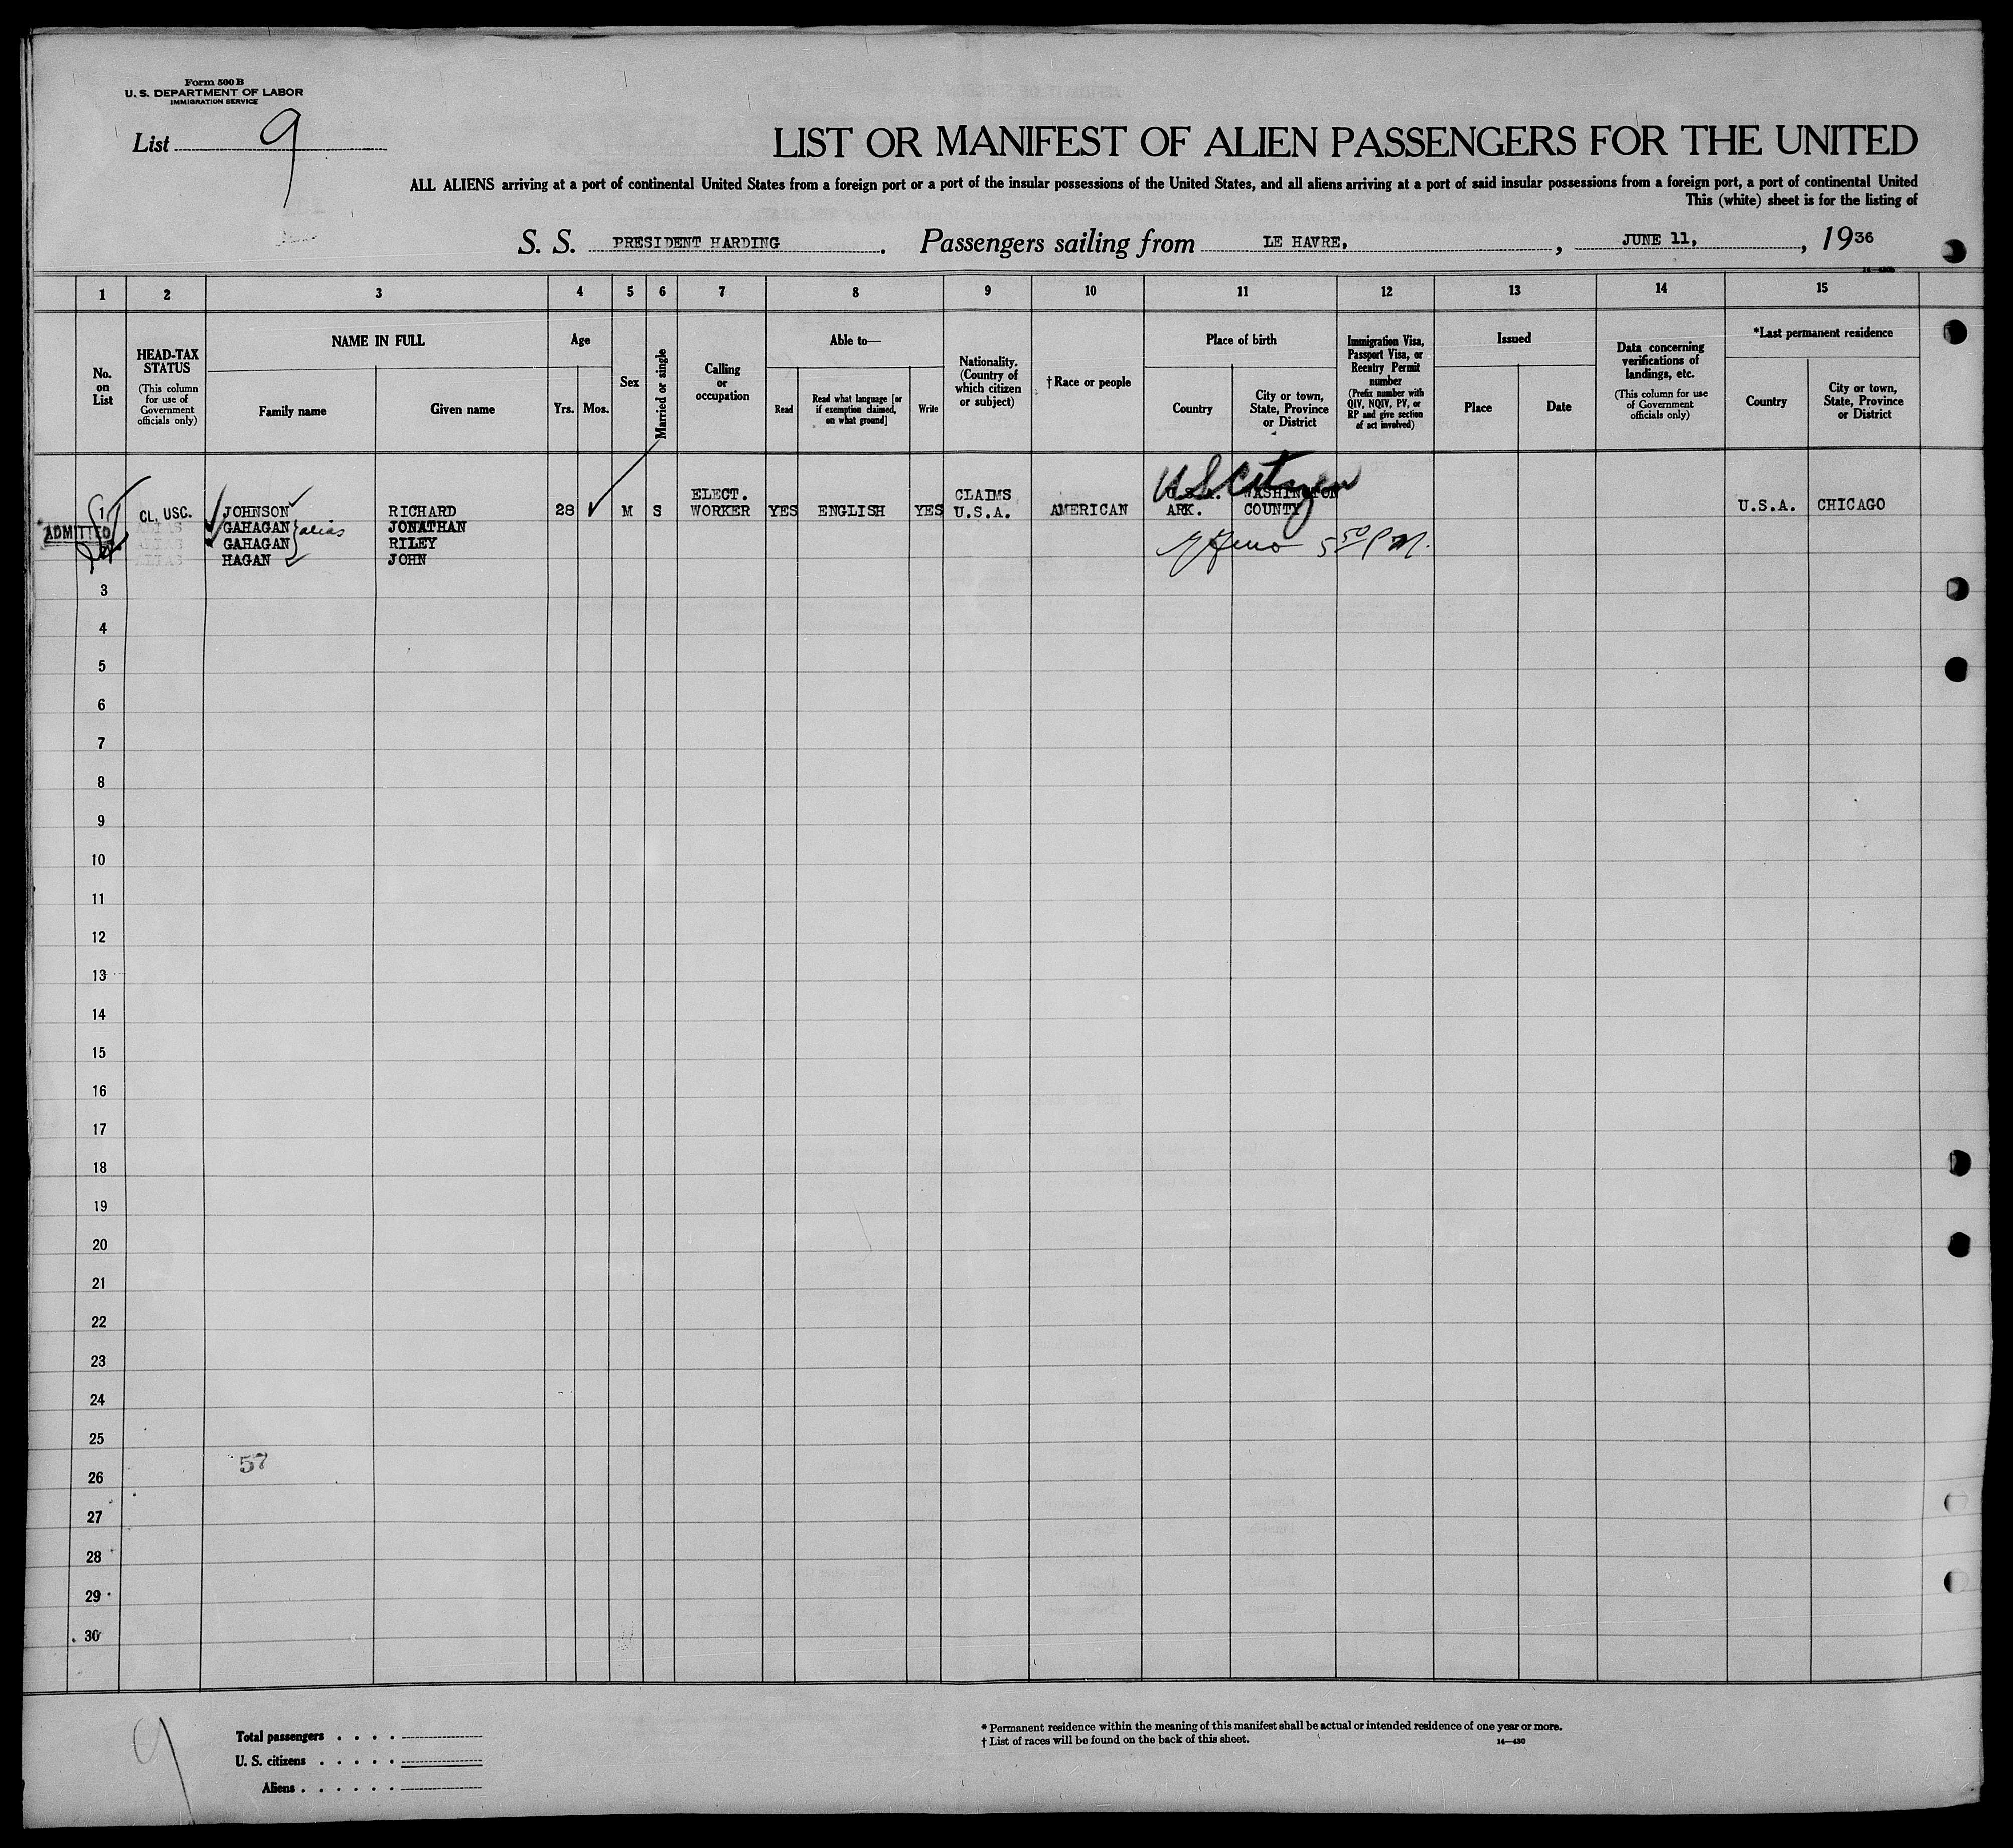 Form 500 B
U. S. DEPARTMENT OF LABOR
IMMIGRATION SERVICE
List 9
LIST OR MANIFEST OF ALIEN PASSENGERS FOR THE UNITED
ALL ALIENS arriving at a port of continental United States from a foreign port or a port of the insular possessions of the United States, and all aliens arriving at a port of said insular possessions from a foreign port, a port of continental United
This (white) sheet is for the listing of
S. S. PRESIDENT HARDING. Passengers sailing from LE HAVRE, , JUNE 11, , 1936
1 2 3 4 5 6 7 8 9 10 11 12 13 14 15
No. on List
HEAD-TAX STATUS
(This column for use of Government officials only)
NAME IN FULL
Family name
Given name
Age
Yrs. Mos.
Sex
Married or single
Calling or occupation
Able to—
Read
Read what language [or if exemption claimed, on what ground]
Write
Nationality. (Country of which citizen or subject)
† Race or people
Place of birth
Country
City or town, State, Province or District
Immigration Visa, Passport Visa, or Reentry Permit number
(Prefix number with QIV, NQIV, PV, or RP and give section of act involved)
Issued
Place
Date
Data concerning verifications of landings, etc.
(This column for use of Government officials only)
*Last permanent residence
Country
City or town, State, Province or District
US Citizen
ELECT. CLAIMS U.S.A. WASHINGTON
1 CL, USC. JOHNSON RICHARD 28 M S WORKER YES ENGLISH YES U.S.A. AMERICAN ARK. COUNTY U.S.A. CHICAGO
ADMITTED ALIAS GAHAGAN alias JONATHAN
ALIAS GAHAGAN RILEY 5 50 PM.
ALIAS HAGAN JOHN
3
4
5
6
7
8
9
10
11
12
13
14
15
16
17
18
19
20
21
22
23
24
25
57
26
27
28
29
30
9
Total passengers
U. S. citizens
Aliens
* Permanent residence within the meaning of this manifest shall be actual or intended residence of one year or more.
† List of races will be found on the back of this sheet.
14—430